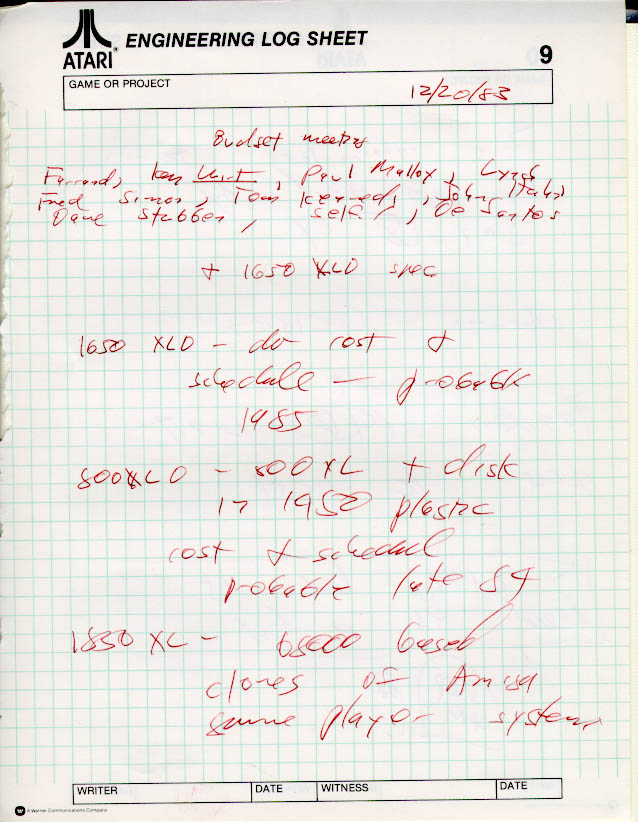 ATARI® ENGINEERING LOG SHEET 9
GAME OR PROJECT
12/20/83
Budset meeting
Ken, Paul Mallox,
Fred Simon, Tom, John
Dave Stubben, self, De Santos
+ 1650 XLD spec
1650 XLD - do cost +
schedule — probable
1985
800XLD - 800XL + disk
in 1450 plastic
cost + schedul
probable late 84
1850 XL - 68000 based
clones of Amiga
game player system
WRITER DATE WITNESS DATE
W A Warner Communications Company